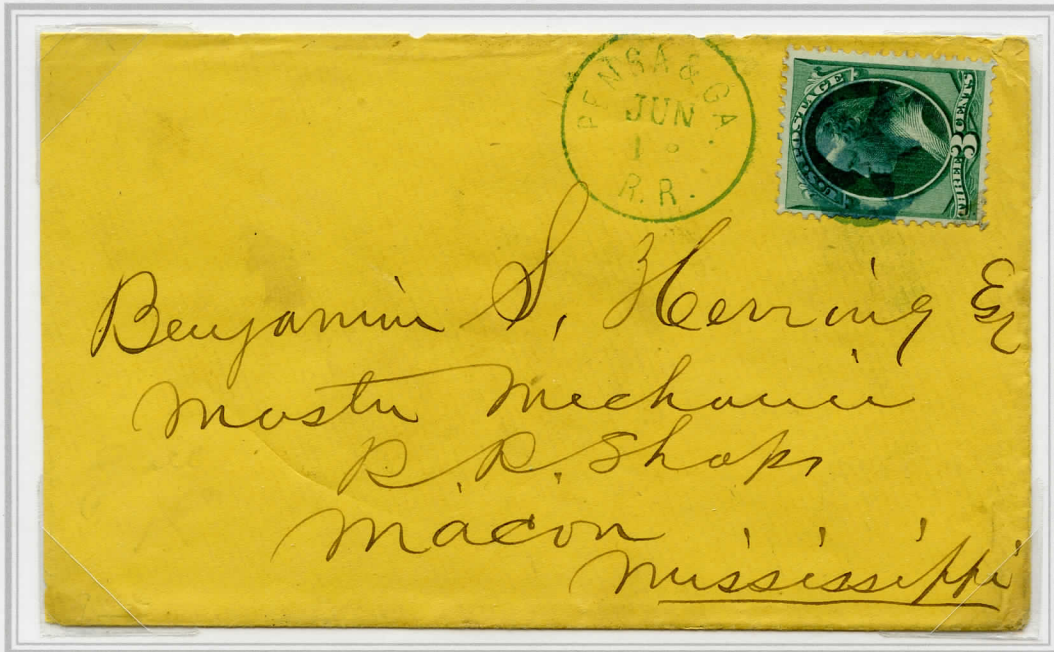 PENSA & GA.
JUN
R.R.
U.S. POSTAGE
THREE 3 CENTS
Benjamin S. Herring Esq
Master Mechanic
R.R. Shops
Macon
Mississippi